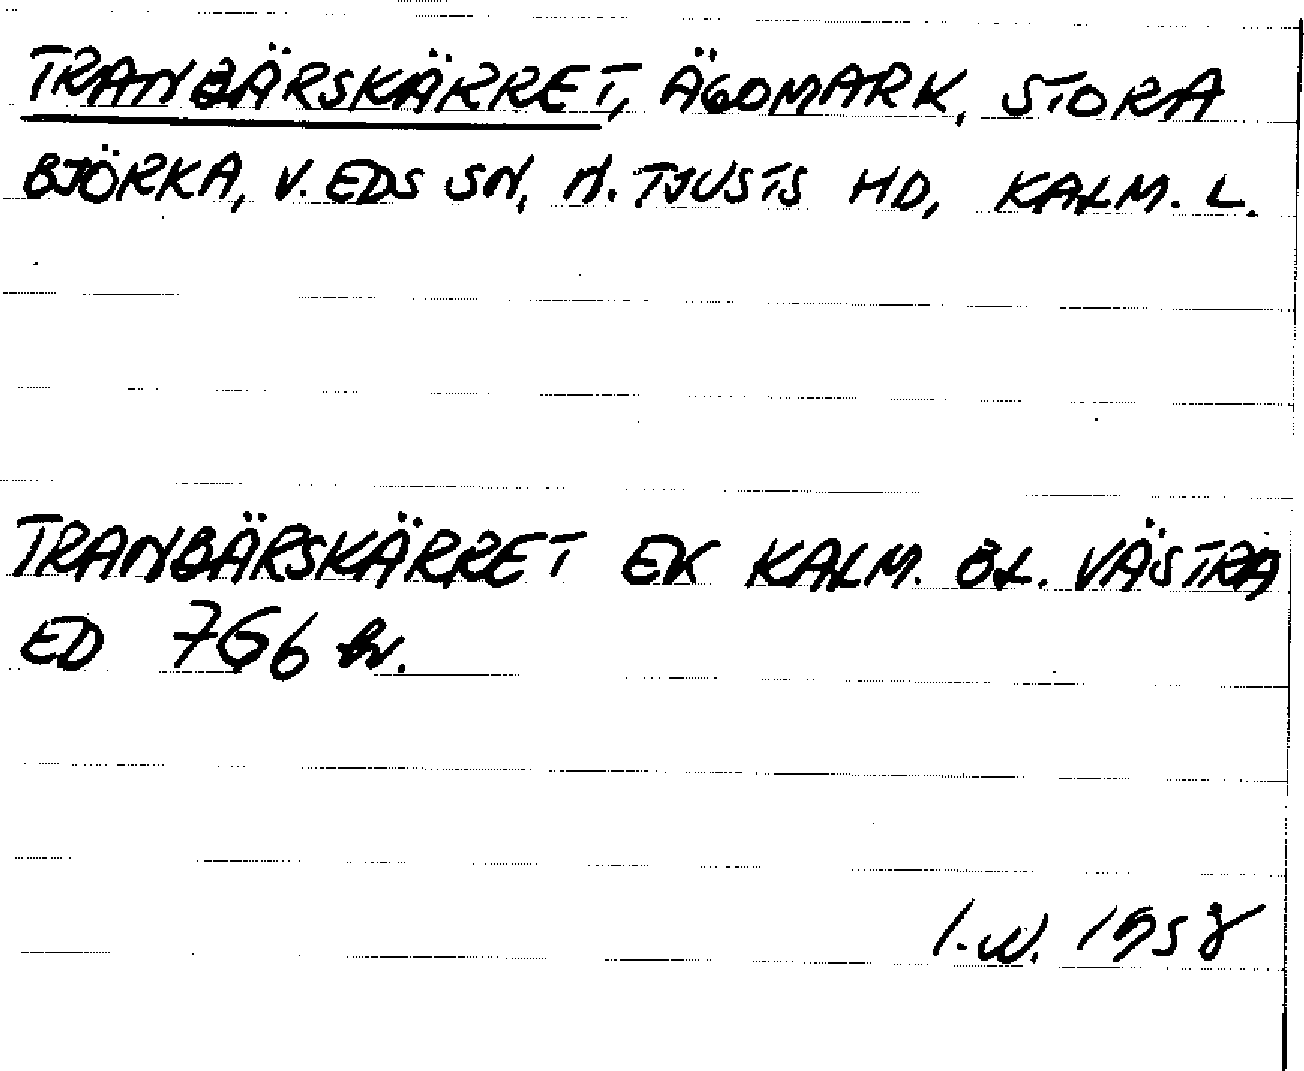 TRANBÄRSKÄRRET, ÄGOMARK, STORA
BJÖRKA, V. EDS SN, N. TJUSTS HD, KALM. L.
TRANBÄRSKÄRRET EK KALM. BL. VÄSTRA
ED 766 kv.
I.W. 1958